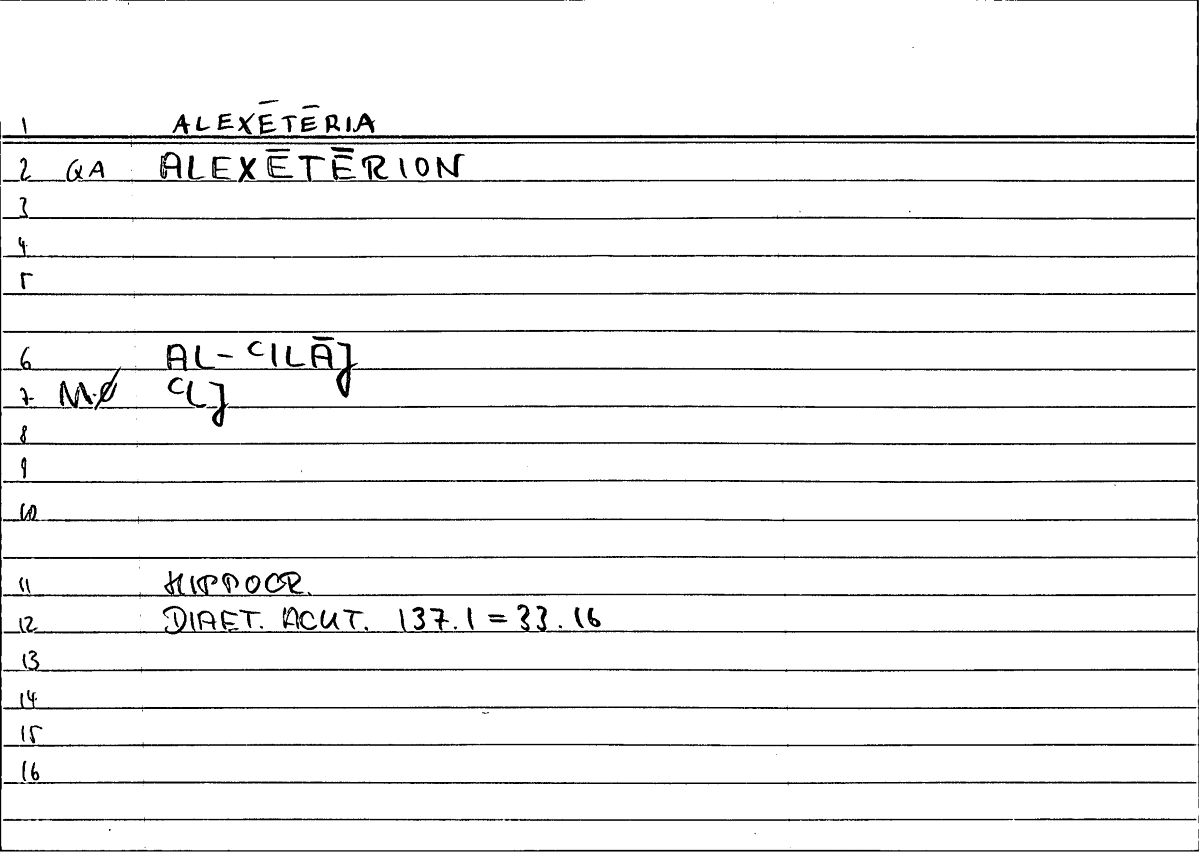 1 ALEXĒTĒRIA
2 QA ALEXĒTĒRION
3
4
5
6 AL-ʿILĀJ
7 MØ ʿLJ
8
9
10
11 HIPPOCR.
12 DIAET. ACUT. 137.1 = 33.16
13
14
15
16